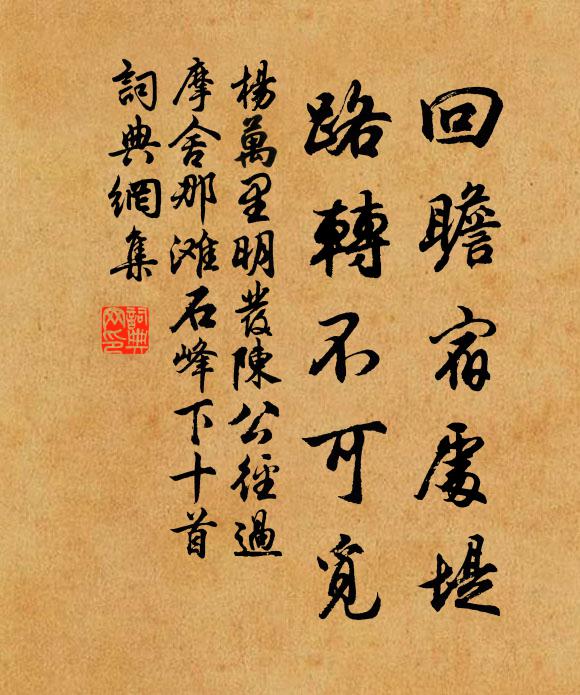 回瞻宿處堤
路轉不可覓
楊萬里明發陳公徑過
摩舍那滩石峰下十首
詞典網集
詞典网印